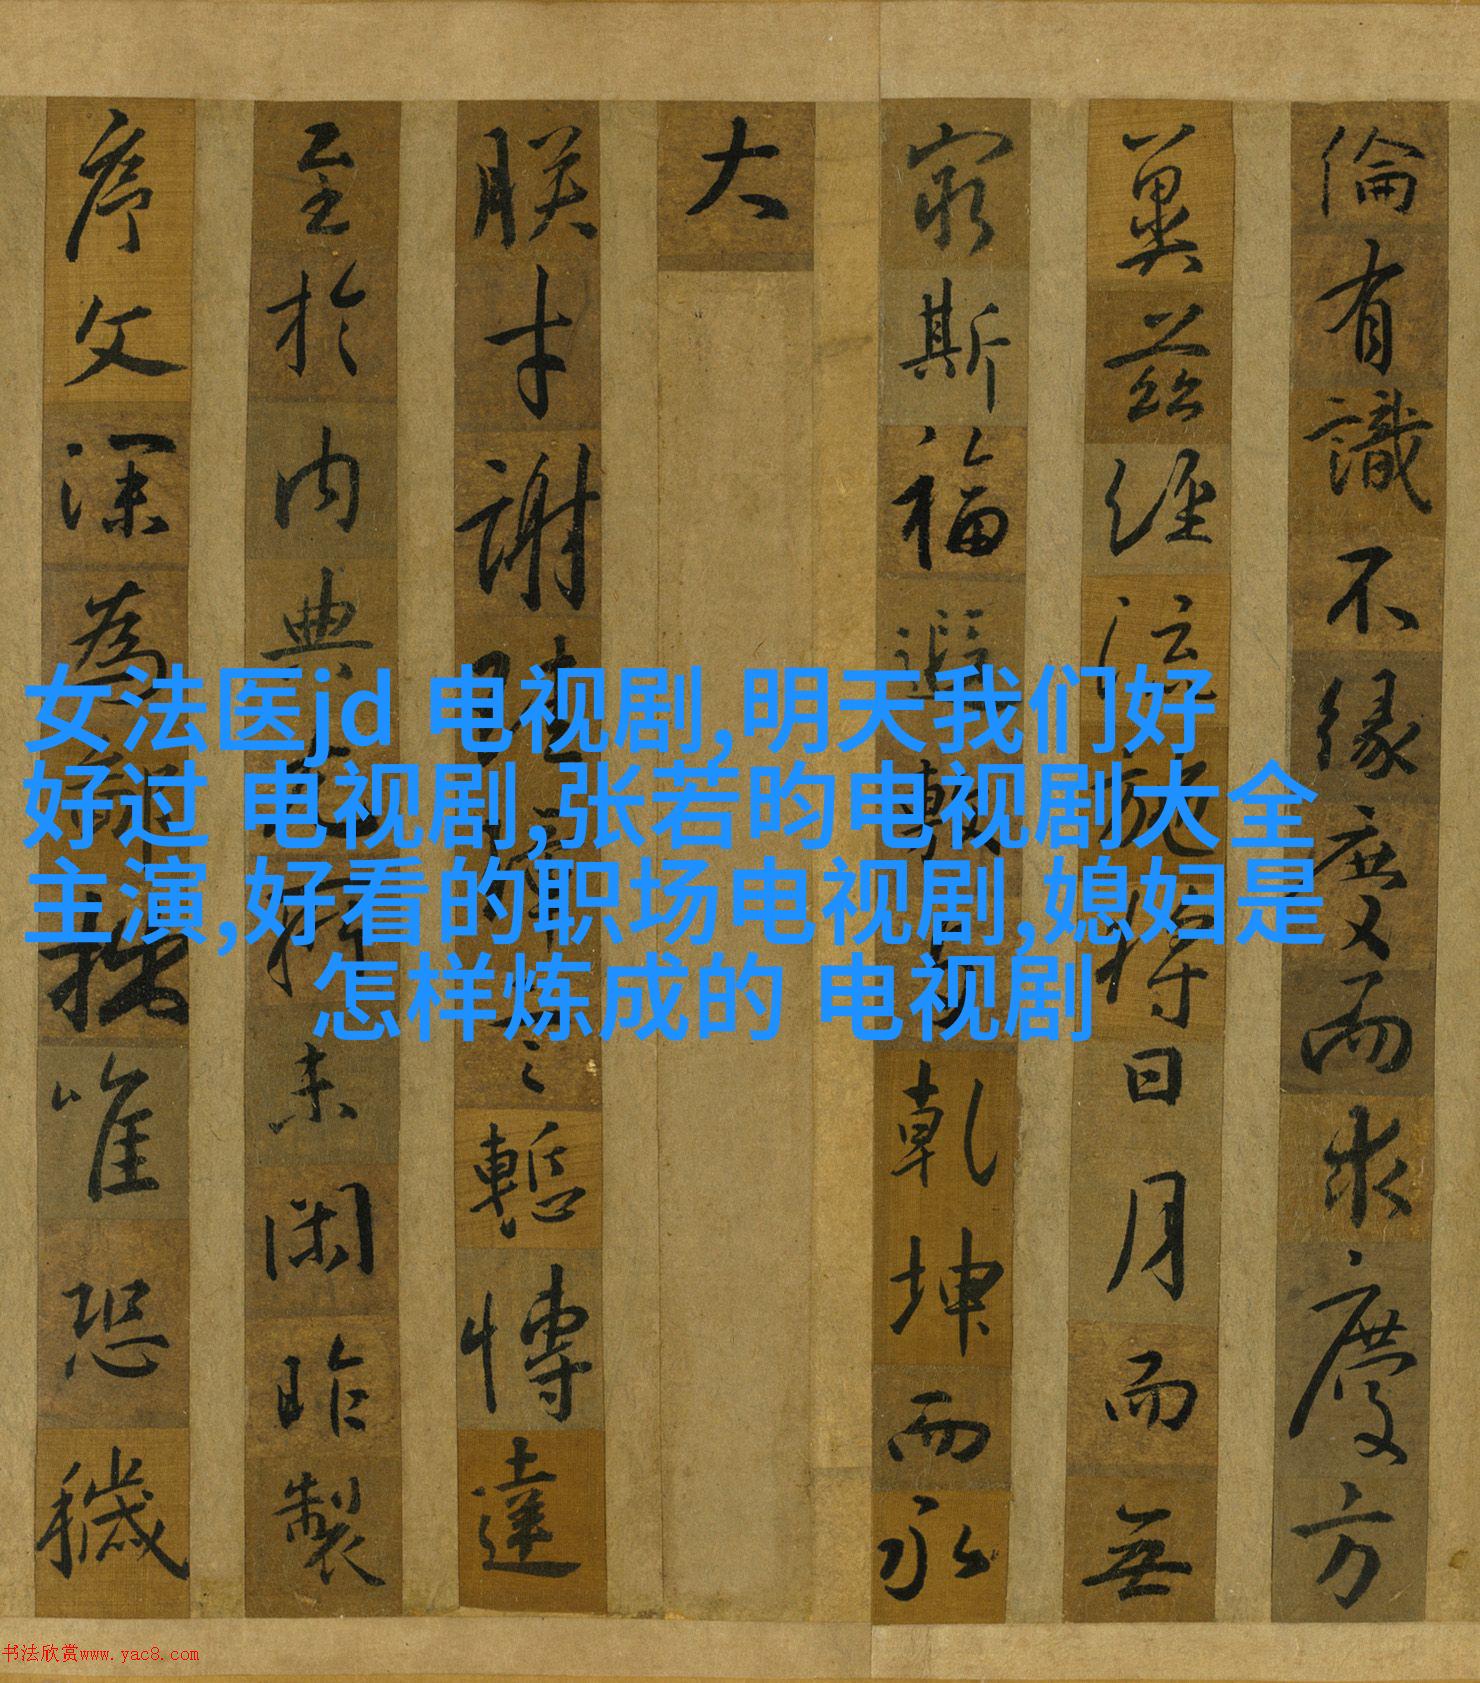 倫有識不緣慶而求慶方
冀茲經流施將日月而無
窮斯福遐敷與乾坤而永
大
朕才謝珪璋言慙博達
至於內典尤所未閑昨製
序文深為鄙拙唯恐穢
女法医jd 电视剧,明天我们好
好过 电视剧,张若昀电视剧大全
主演,好看的职场电视剧,媳妇是
怎样炼成的 电视剧
书法欣赏www.yac8.com